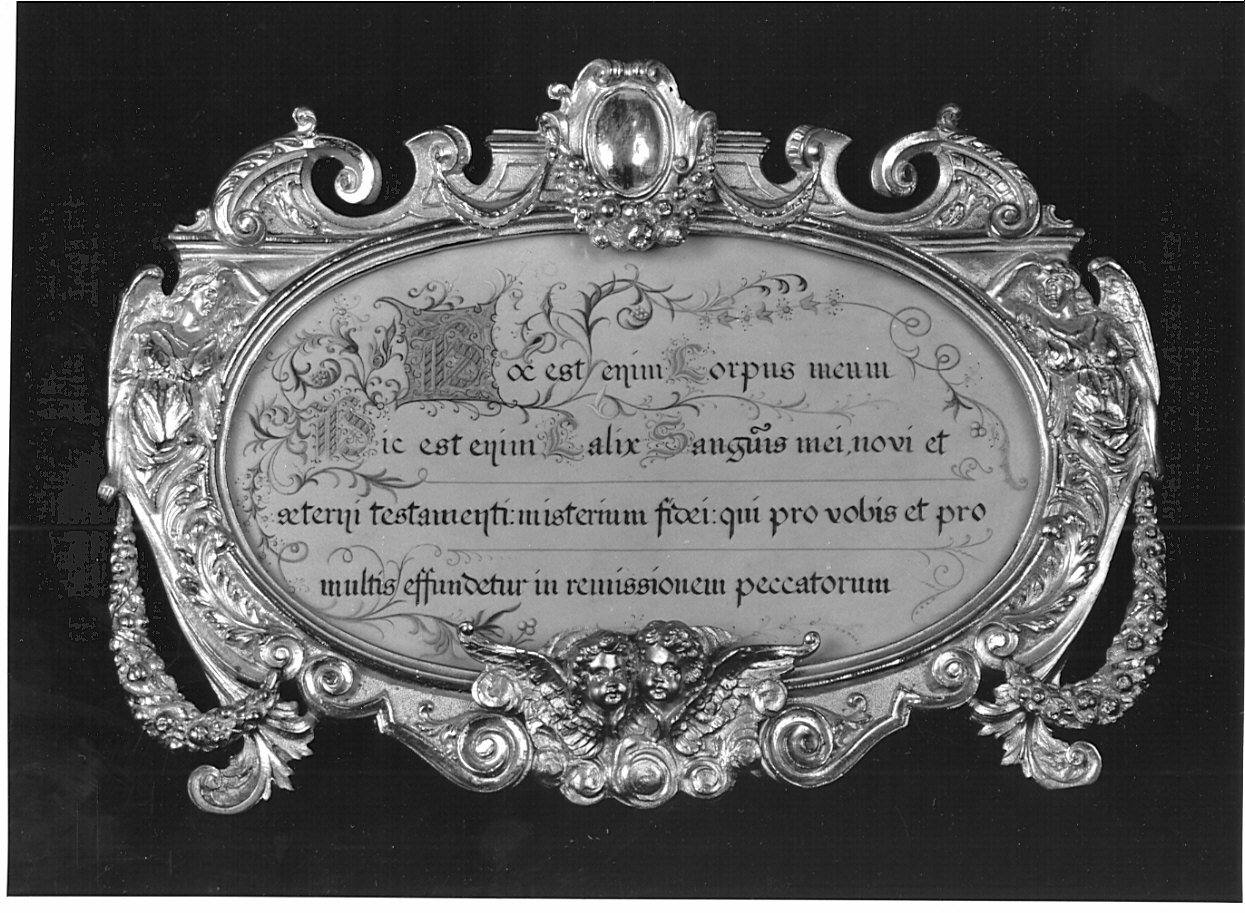 Hoc est enim Corpus meum
Hic est enim Calix Sangũis mei, novi et
æterni testamenti: misterium fidei: qui pro vobis et pro
multis effundetur in remissionem peccatorum